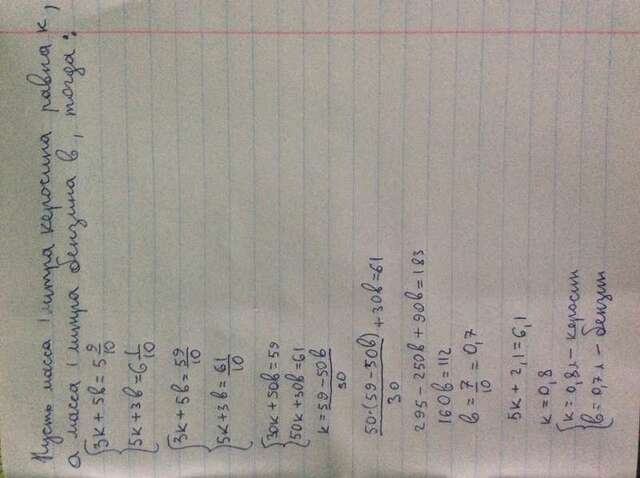 Пусть масса 1 литра керосина равна к,
а масса 1 литра бензина в, тогда:
{3к + 5в = 5 9/10
5к + 3в = 6 1/10
{3к + 5в = 59/10
5к + 3в = 61/10
{30к + 50в = 59
50к + 30в = 61
к = 59 - 50в / 30
50·(59 - 50в) / 30 + 30в = 61
295 - 250в + 90в = 183
160в = 112
в = 7/10 = 0,7
5к + 2,1 = 6,1
к = 0,8
{к = 0,8л - керосин
в = 0,7л - бензин